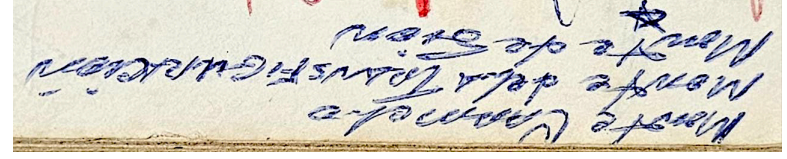 Monte Carmelo
Monte de la TRANSFIGURACION
Monte de Sion